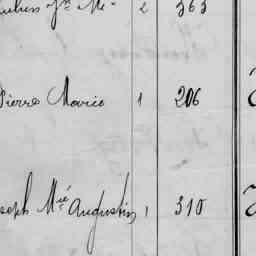 2 363
Pierre Marie 1 206
seph Mie Augustin 1 310